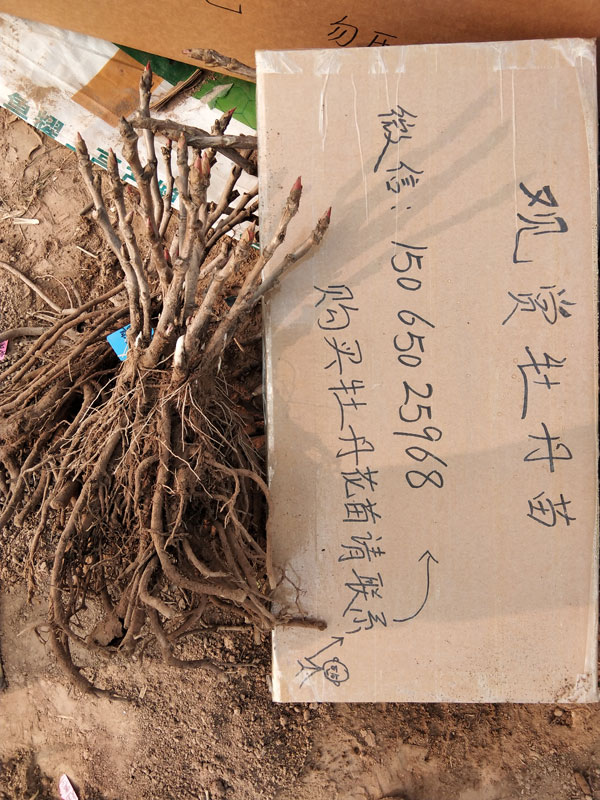 观赏牡丹苗
微信：150 650 25968
购买牡丹花苗请联系
勿压